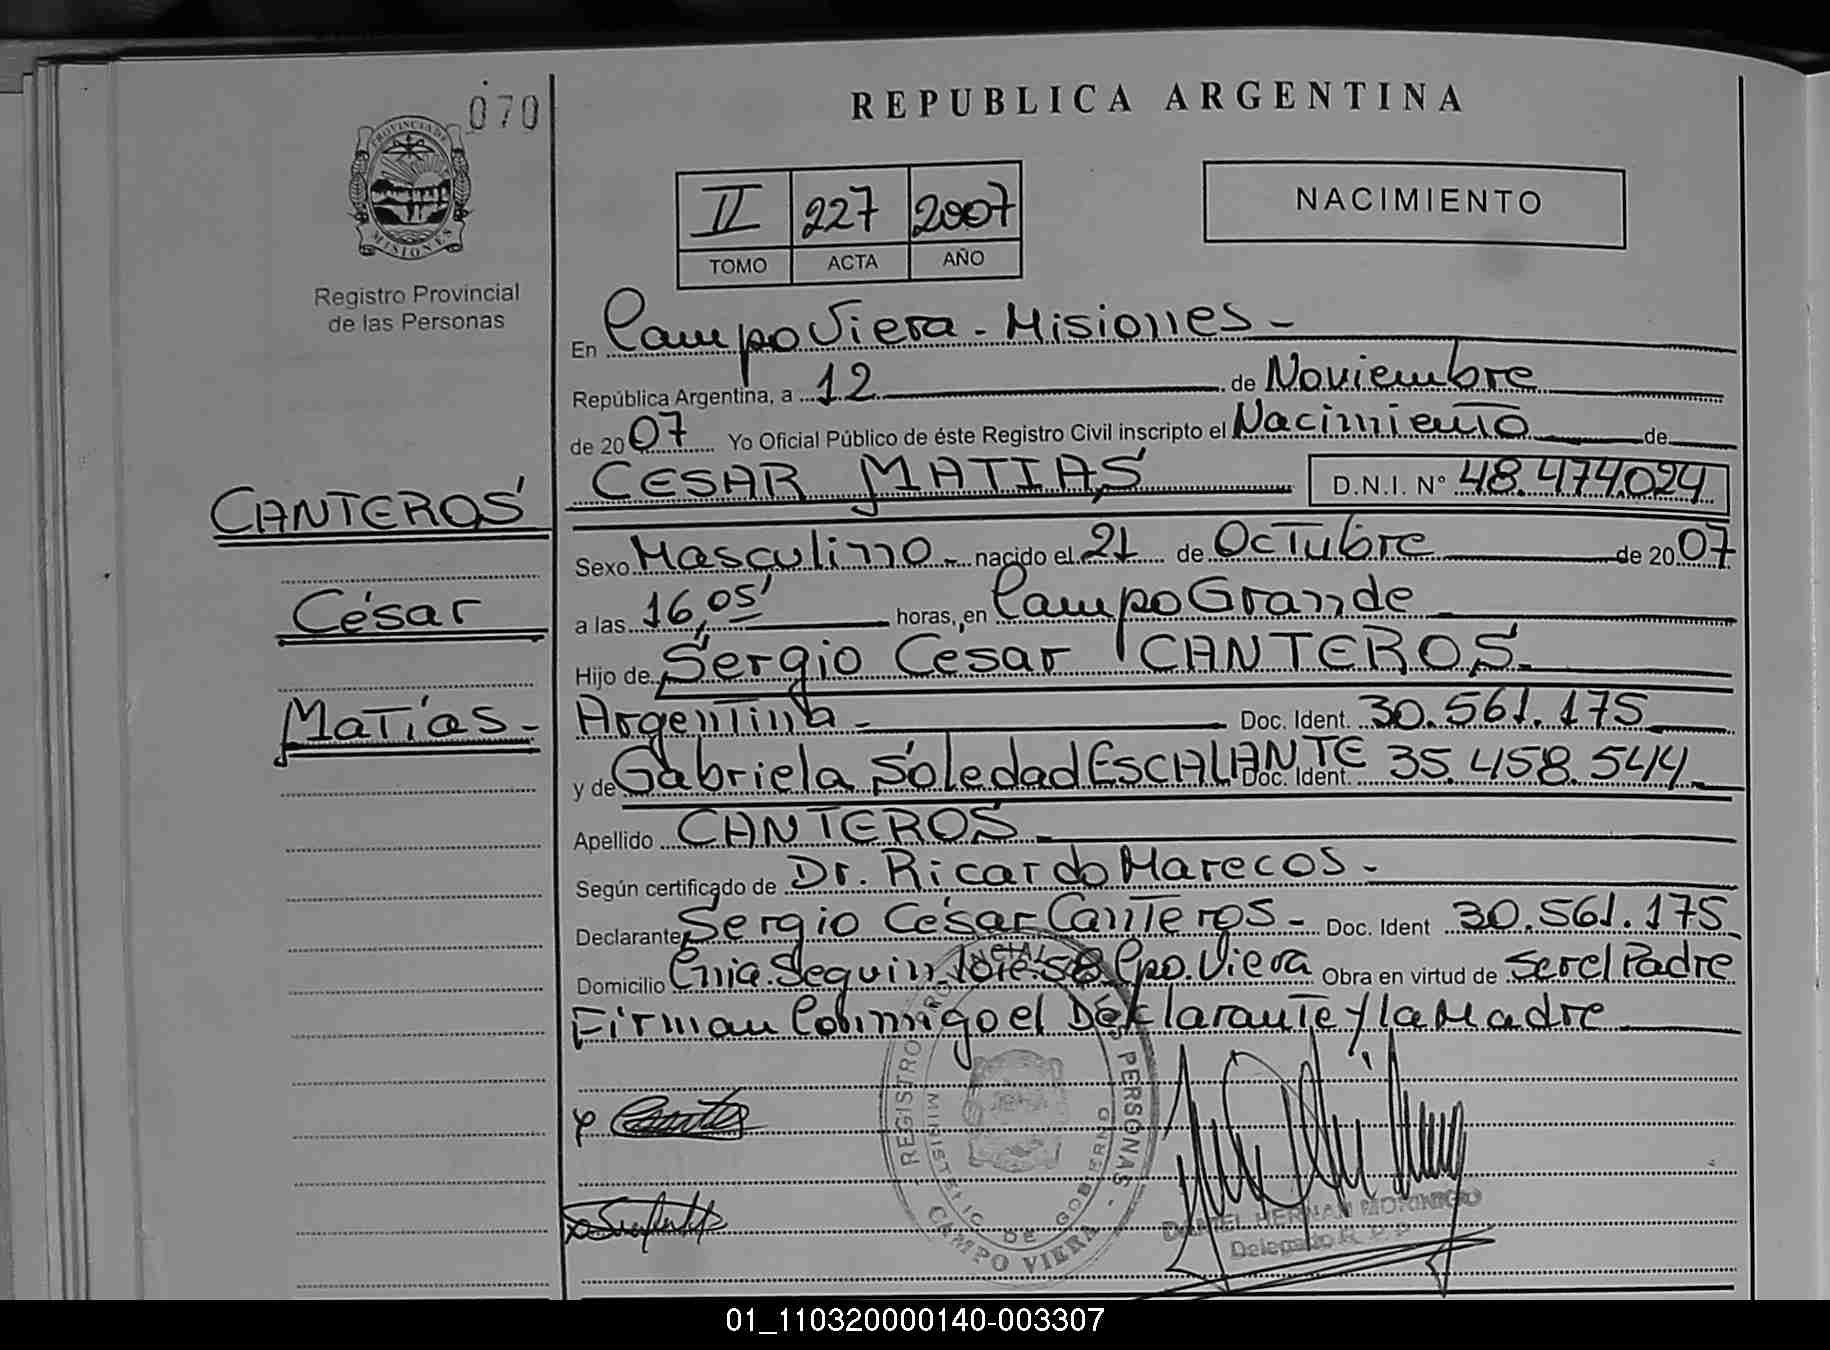 070
REPUBLICA ARGENTINA
PROVINCIA DE
MISIONES
Registro Provincial
de las Personas
II 227 2007
TOMO ACTA AÑO
NACIMIENTO
En Campo Viera - Misiones -
República Argentina, a 12 de Noviembre
de 2007 Yo Oficial Público de éste Registro Civil inscripto el Nacimiento de
CESAR MATIAS D.N.I. N° 48.474.024
CANTEROS
César
Matías -
Sexo Masculino - nacido el 21 de Octubre de 2007
a las 16,05' horas, en Campo Grande
Hijo de Sergio Cesar CANTEROS -
Argentina - Doc. Ident. 30.561.175
y de Gabriela Soledad ESCALANTE Doc. Ident. 35.458.544
Apellido CANTEROS -
Según certificado de Dr. Ricardo Marecos -
Declarante Sergio César Canteros - Doc. Ident 30.561.175
Domicilio Cnia. Seguin lote 58 Cpo. Viera Obra en virtud de ser el Padre
Firman Conmigo el Declarante y la Madre
REGISTRO PROVINCIAL DE LAS PERSONAS
MINISTERIO DE GOBIERNO
CAMPO VIERA
DANIEL HERNAN MORINIGO
Delegado R. P. P.
01_110320000140-003307